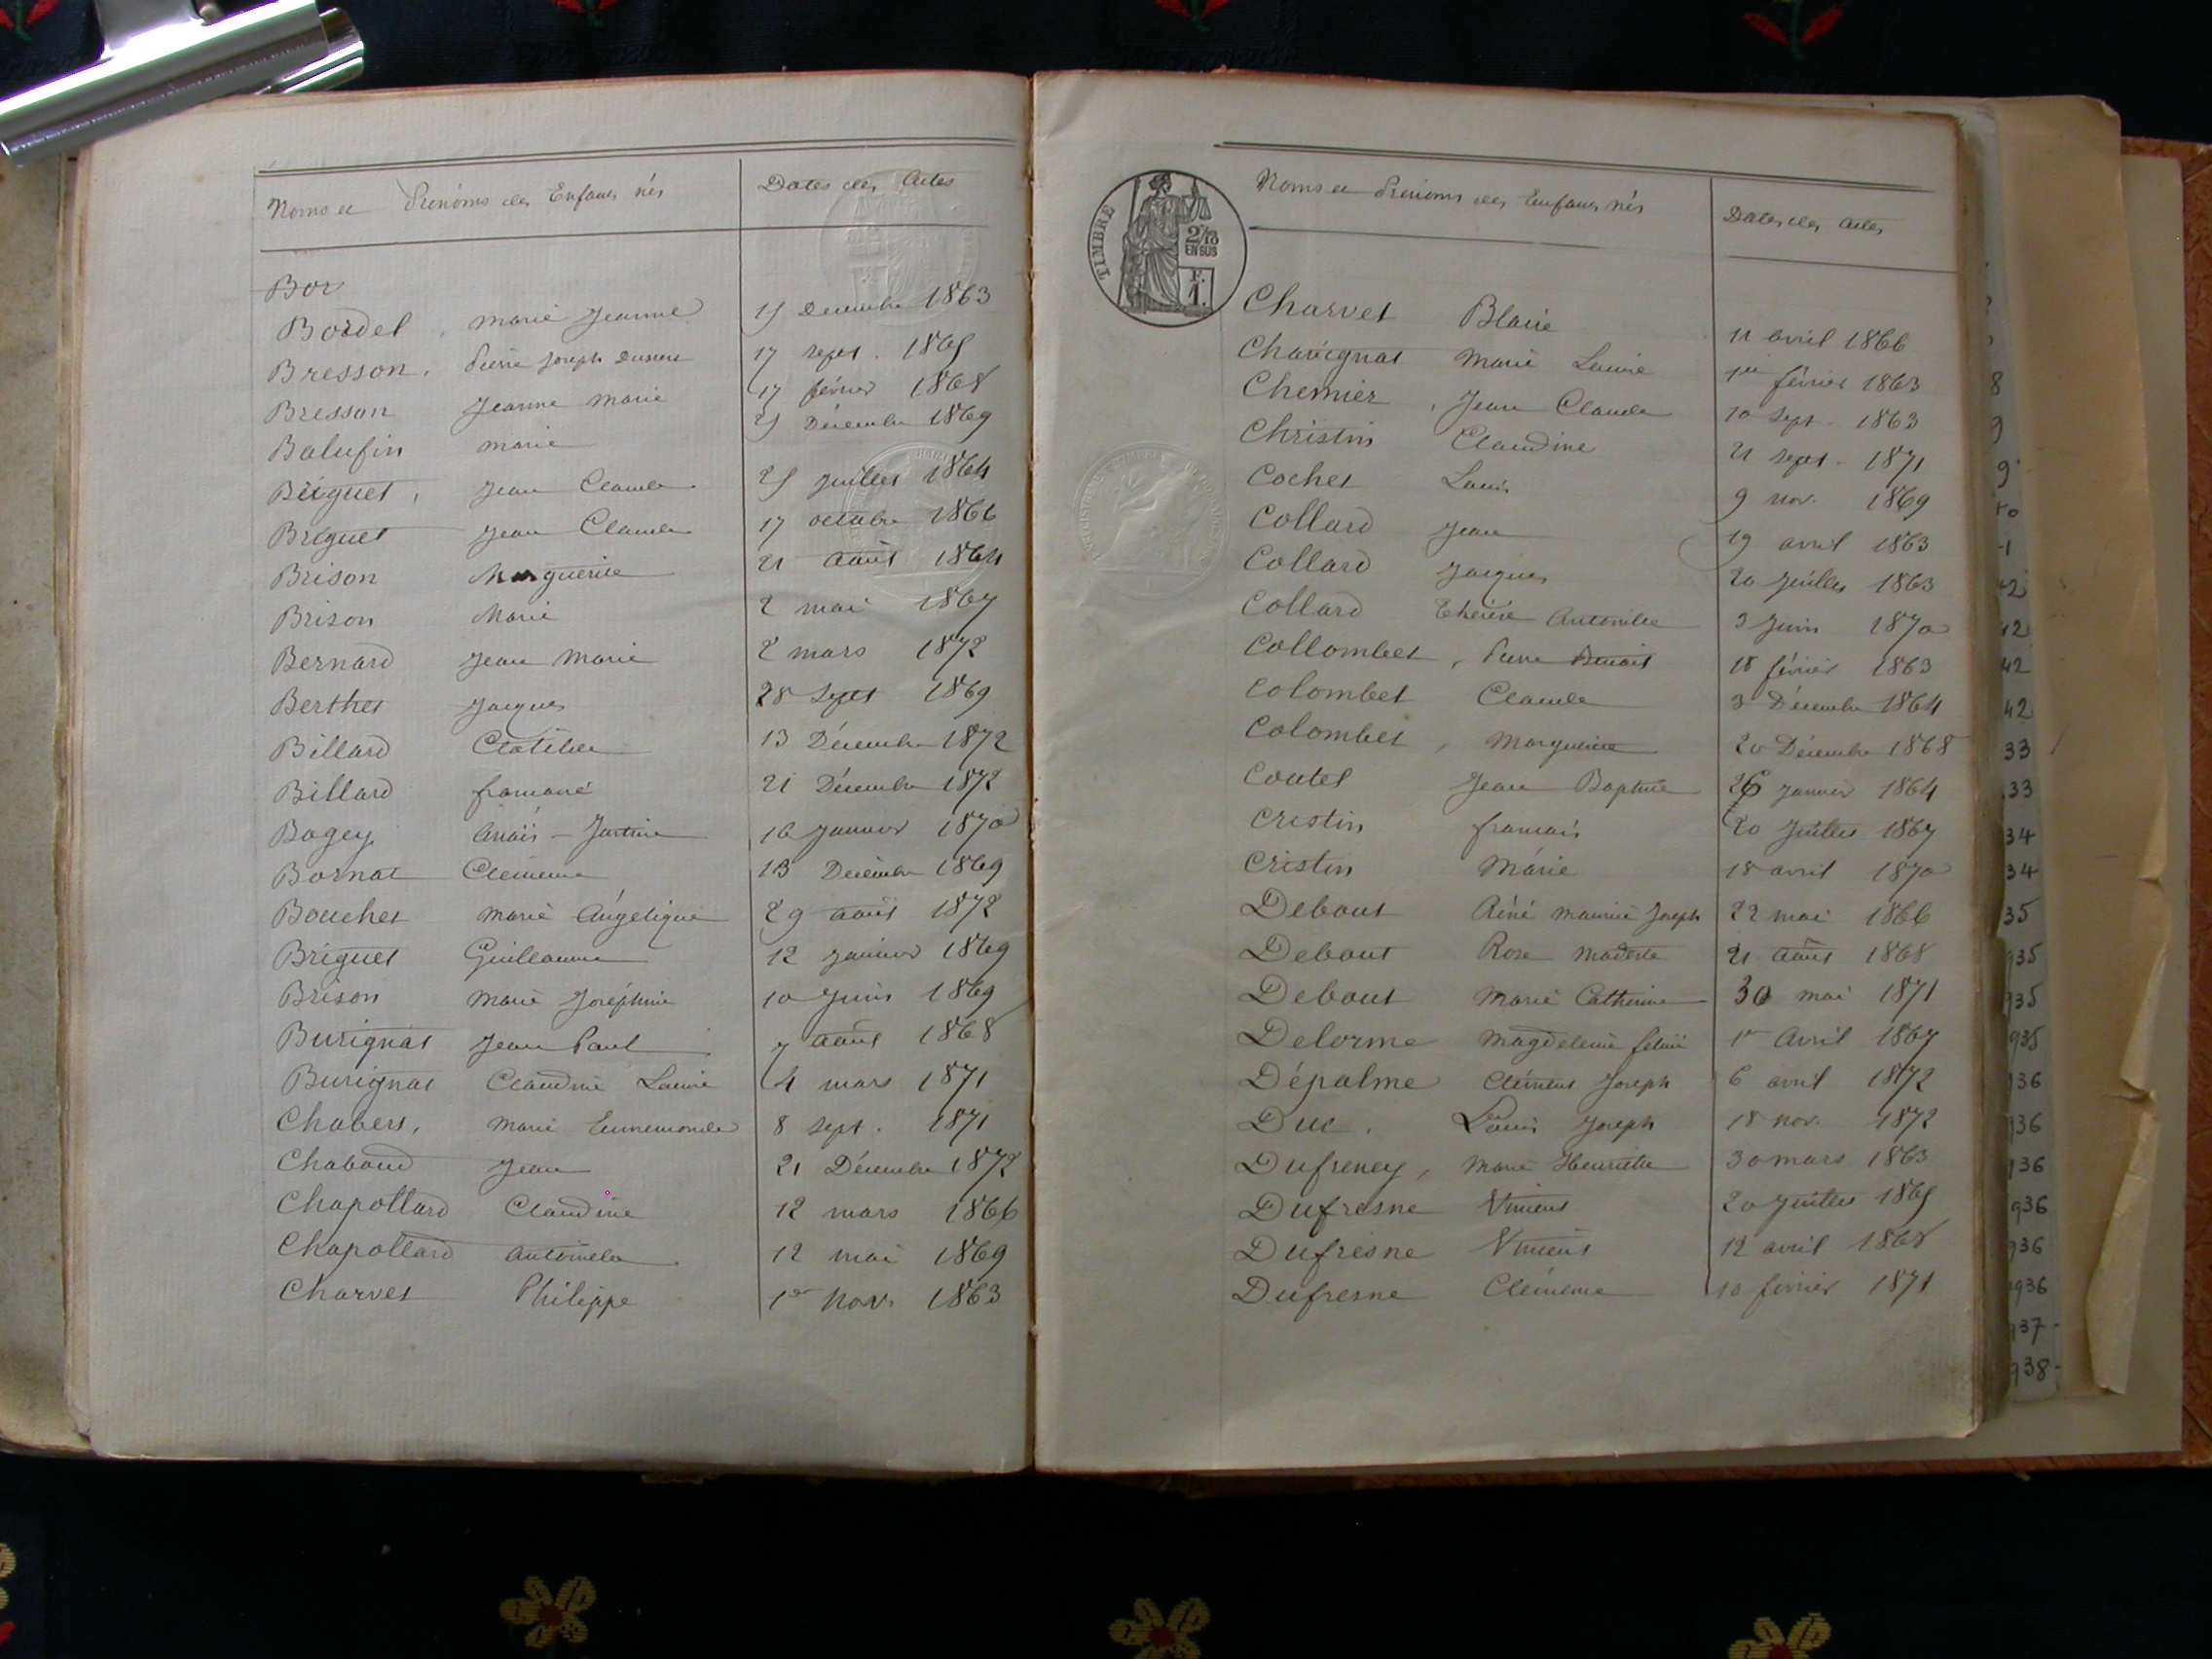 Noms et Prénoms des Enfants nés Dates des Actes
Bor
Bordel, Marie Jeanne 15 Décembre 1863
Bresson, Pierre Joseph 17 sept. 1865
Bresson Jeanne Marie 17 février 1868
Balufin Marie 25 Décembre 1869
Briguet, Jean Claude 25 Juillet 1864
Briguet Jean Claude 17 octobre 1866
Brison Marguerite 21 août 1864
Brison Marie 2 mai 1867
Bernard Jean Marie 2 mars 1872
Berthet Jacques 28 Sept 1869
Billard Clotilde 13 Décembre 1872
Billard 21 Décembre 1872
Bogey Anaïs - Justine 16 Janvier 1870
Bornat Clémence 13 Décembre 1869
Bouchet Marie Angélique 29 août 1872
Briguet Guillaume 12 Janvier 1869
Brison Marie Joséphine 10 Juin 1869
Burignat Jean Paul 7 août 1868
Burignat Claudine Louise 4 mars 1871
Chabert, Marie Ennemonde 8 sept. 1871
Chaboud Jean 21 Décembre 1872
Chapollard Claudine 12 mars 1866
Chapollard Antoinette 12 mai 1869
Charvet Philippe 1er Nov. 1863
TIMBRE
2/10
EN SUS
F.
1.
Noms et Prénoms des Enfants nés Dates des Actes
Charvet Blaise 11 avril 1866
Chavignat Marie Louise 1er février 1863
Chemier, Jean Claude 10 Sept. 1863
Christin Claudine 21 sept. 1871
Cochet Louis 9 nov. 1869
Collard Jean 19 avril 1863
Collard Jacques 20 Juillet 1863
Collard Thérèse Antoinette 3 Juin 1870
Collombet, Pierre Benoit 18 février 1863
Colombet Claude 3 Décembre 1864
Colombet, Marguerite 20 Décembre 1868
Coutel Jean Baptiste 26 Janvier 1864
Cristin François 20 Juillet 1867
Cristin Marie 18 avril 1870
Debout Réné Maurice Joseph 22 mai 1866
Debout Rose Modeste 21 août 1868
Debout Marie Catherine 30 mai 1871
Delorme Magdeleine 1er Avril 1867
Dépalme Clément Joseph 6 avril 1872
Duc, Louis Joseph 18 nov. 1872
Dufreney, Marie Henriette 30 mars 1863
Dufresne Vincent 20 Juillet 1865
Dufresne Vincent 12 avril 1868
Dufresne Clémence 10 février 1871
8
9
9
42
42
42
42
33
33
34
34
35
935
935
935
936
936
936
936
936
936
937-
938-